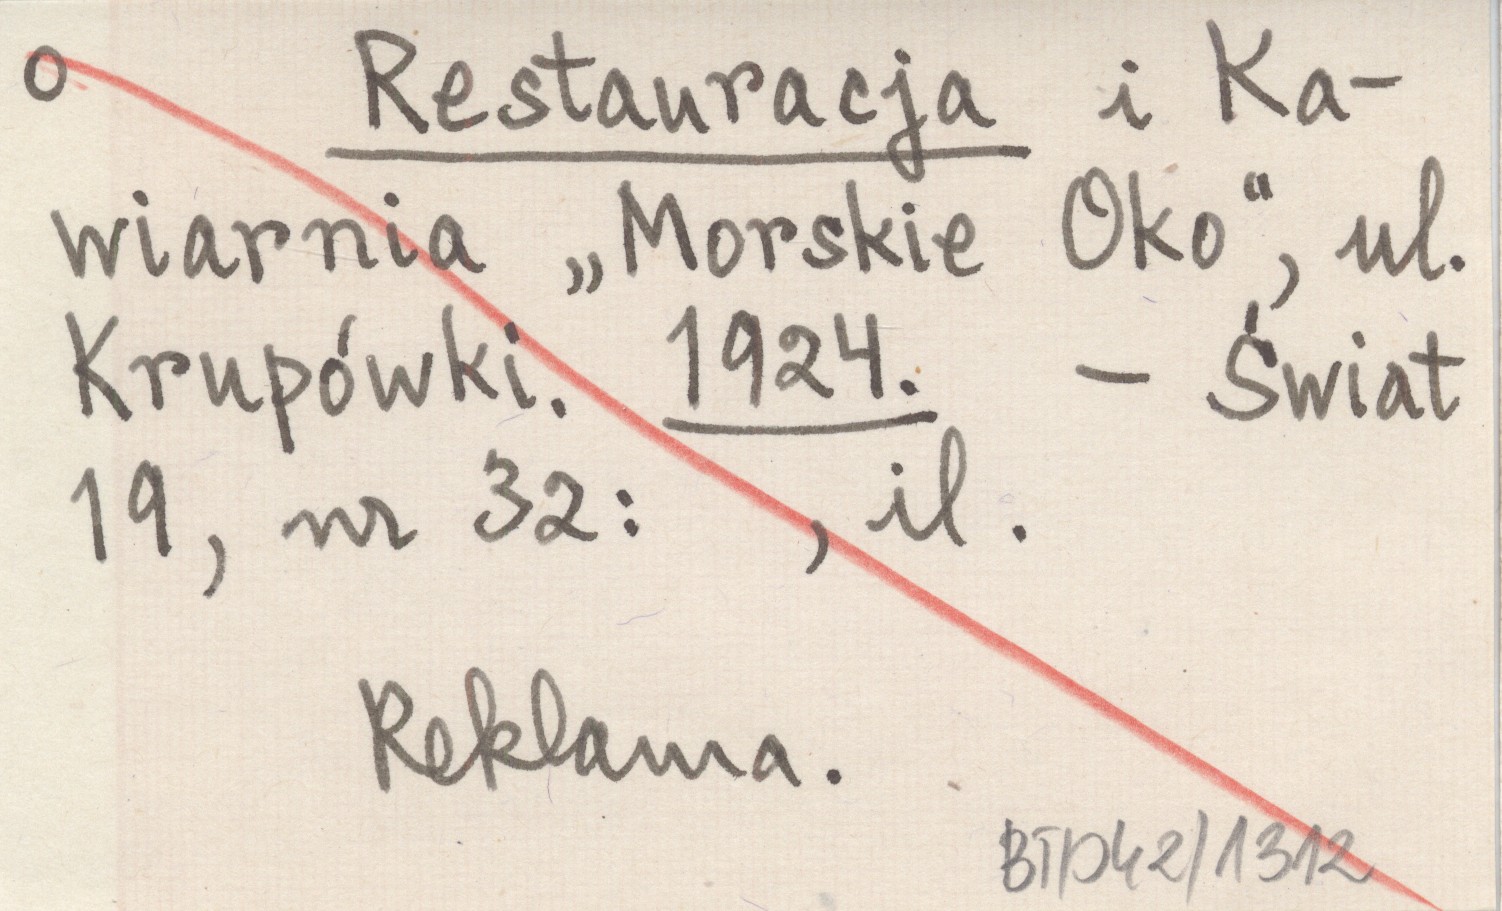 o Restauracja i Ka-
wiarnia „Morskie Oko“, ul.
Krupówki. 1924. – Świat
19, nr 32: , il.
Reklama.
BT/D42/1312